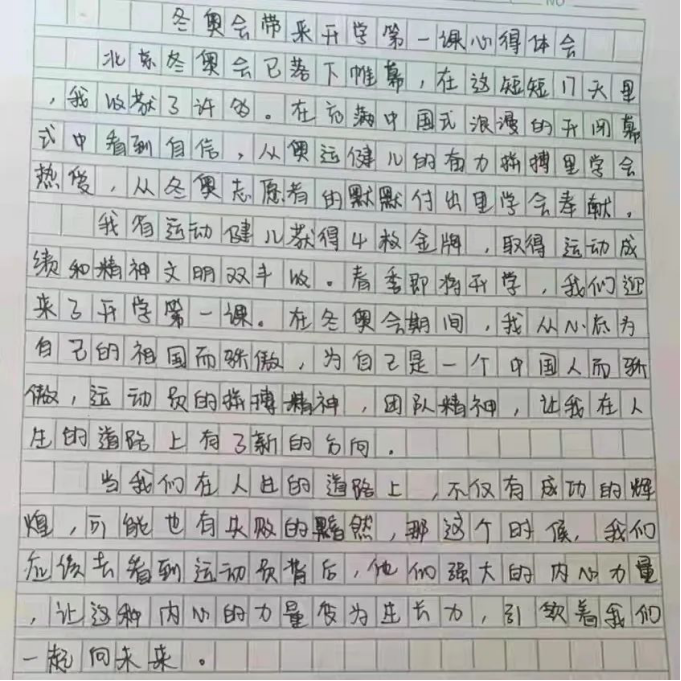 冬奥会带来开学第一课心得体会
北京冬奥会已落下帷幕，在这短短17天里
，我收获了许多。在充满中国式浪漫的开闭幕
式中看到自信，从奥运健儿的奋力拼搏里学会
热爱，从冬奥志愿者的默默付出里学会奉献。
我省运动健儿获得4枚金牌，取得运动成
绩和精神文明双丰收。春季即将开学，我们迎
来了开学第一课。在冬奥会期间，我从心底为
自己的祖国而骄傲，为自己是一个中国人而骄
傲，运动员的拼搏精神，团队精神，让我在人
生的道路上有了新的方向。
当我们在人生的道路上，不仅有成功的辉
煌，可能也有失败的黯然，那这个时候，我们
应该去看到运动员背后，他们强大的内心力量
，让这种内心的力量变为生长力，引领着我们
一起向未来。